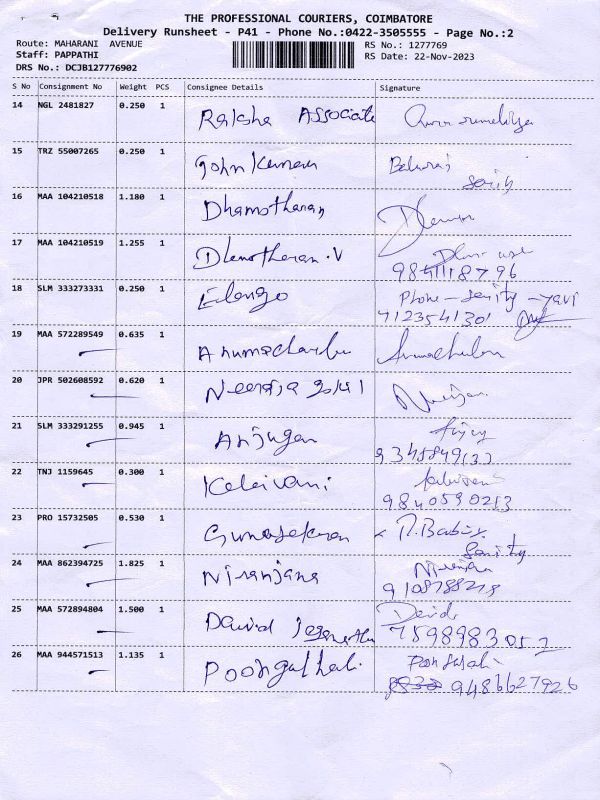 THE PROFESSIONAL COURIERS, COIMBATORE
Delivery Runsheet - P41 - Phone No.:0422-3505555 - Page No.:2
Route: MAHARANI AVENUE
RS No.: 1277769
Staff: PAPPATHI
RS Date: 22-Nov-2023
DRS No.: DCJB127776902
S No Consignment No Weight PCS Consignee Details Signature
14 NGL 2481827 0.250 1 Raksha Associate
15 TRZ 55007265 0.250 1 John Kumaran
16 MAA 104210518 1.180 1 Dhamotharan
17 MAA 104210519 1.255 1 Dhamotharan.V
9841118796
18 SLM 333273331 0.250 1 Elango Phone - Serity - ravi
7123541301
19 MAA 572289549 0.635 1
20 JPR 502608592 0.620 1
21 SLM 333291255 0.945 1 Anjugan
22 TNJ 1159645 0.300 1 Kalaivani
9840590213
23 PRO 15732505 0.530 1 Gunasekaran R.Babu
Serity
24 MAA 862394725 1.825 1 Niranjana
25 MAA 572894804 1.500 1 David
7598983057
26 MAA 944571513 1.135 1 Poongathai
9486627926